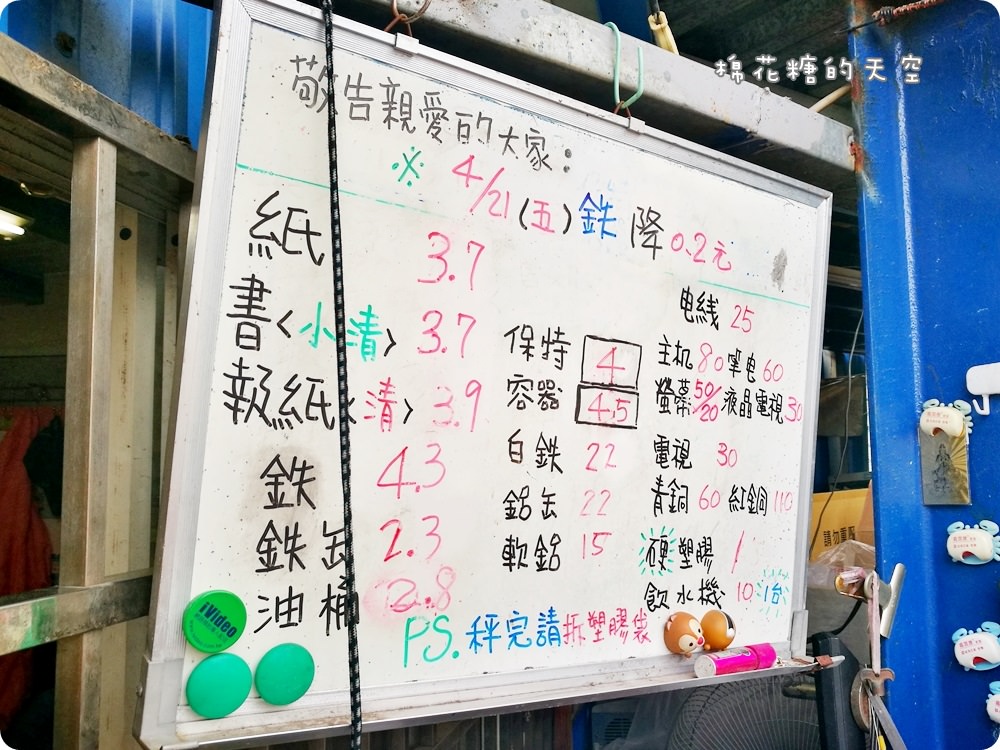 棉花糖的天空
敬告親愛的大家:
※ 4/21(五)鉄降0.2元
紙 3.7
書<小清> 3.7
報紙<清> 3.9
鉄 4.3
鉄缶 2.3
油桶 2.8
保特 4
容器 4.5
白鉄 22
鋁缶 22
軟鋁 15
电綫 25
主机 80 筆电 60
螢幕 50/20 液晶電視 30
電視 30
青銅 60 紅銅 110
硬塑膠 1
飲水機 10 1台
PS.秤完請拆塑膠袋
iVideo
請勿重壓